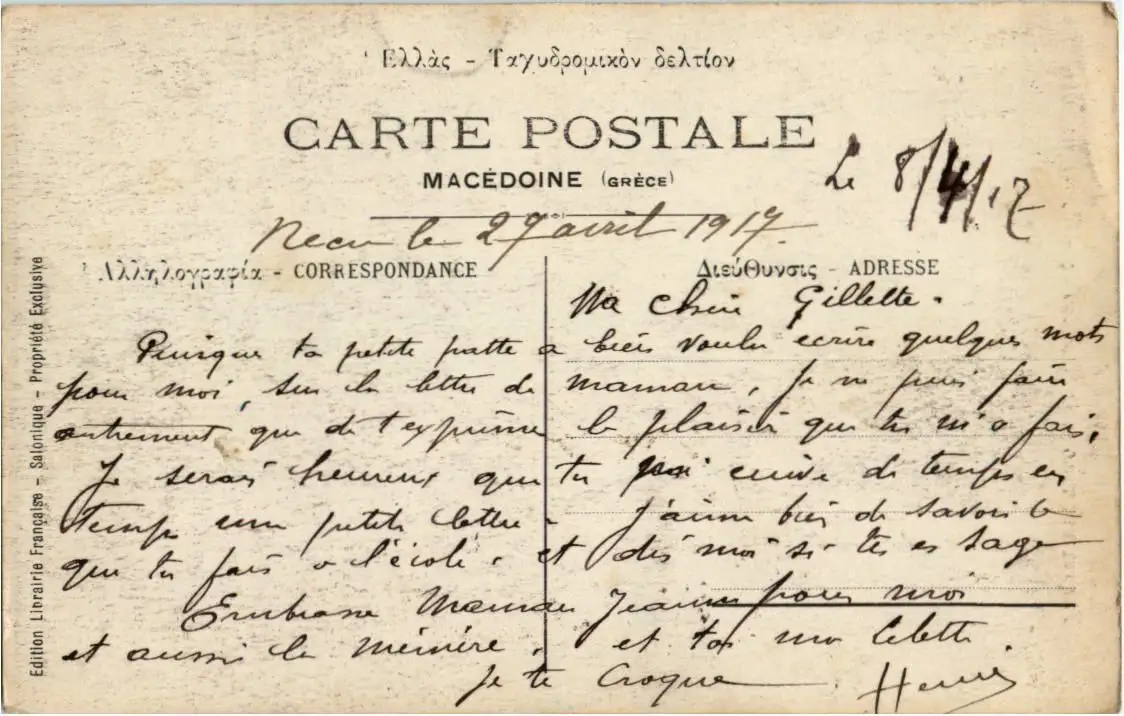 Ἑλλὰς - Ταχυδρομικὸν δελτίον
CARTE POSTALE
MACÉDOINE (GRÈCE)
Le 8/4/17
Recu le 27 avril 1917.
Ἀλληλογραφία - CORRESPONDANCE
Διεύθυνσις - ADRESSE
Ma chère Gillette.
Puisque ta petite patte a bien voulu ecrire quelques mots
pour moi, sur la lettre de maman, Je ne puis faire
autrement que de t'exprimer le plaisir que tu m'a fais.
Je serais heureux que tu ecrive de temps en
temps une petite lettre. J'aime bien de savoir ce
que tu fais a l'école. et dis moi si tu es sage
Embrasse Maman Jeanne pour moi
et aussi la mémère. et toi ma Lelette
Je te Croque Henri
Edition Librairie Française - Salonique - Propriété Exclusive